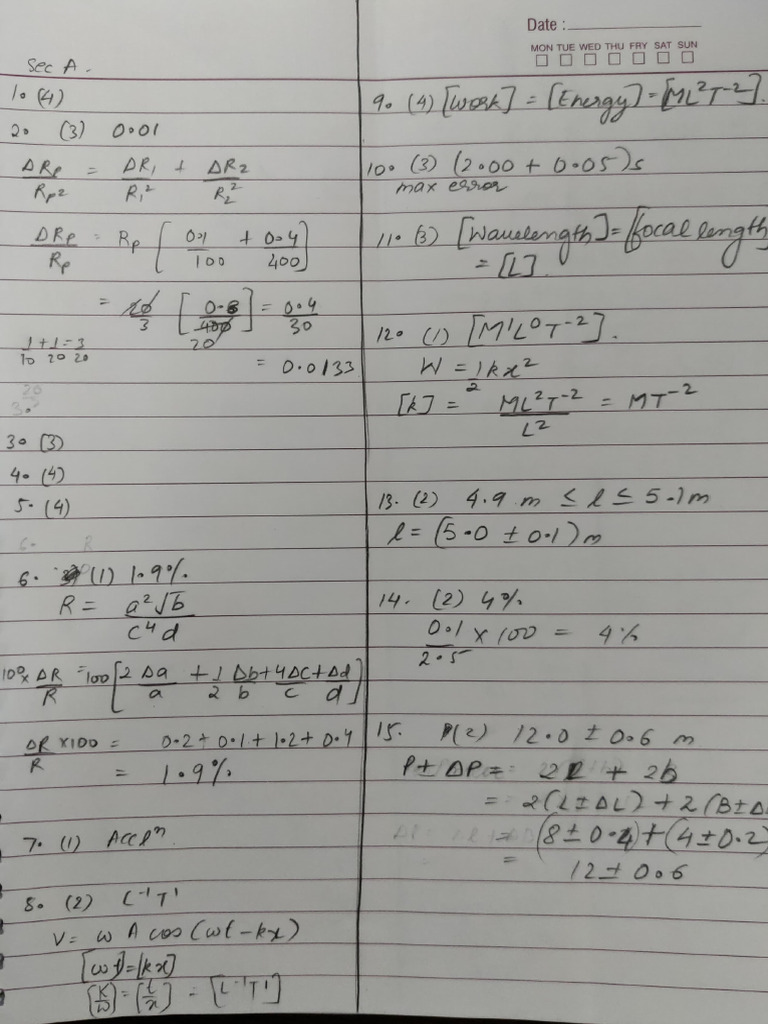 Date :
MON TUE WED THU FRI SAT SUN
Sec A.
1. (4)
2. (3) 0.01
ΔRp/Rp² = ΔR₁/R₁² + ΔR₂/R₂²
ΔRp/Rp = Rp [0.1/100 + 0.4/400]
= 20/3 [0.8/400] = 0.4/30
20
1/10 + 1/20 = 3/20
= 0.0133
3. (3)
4. (4)
5. (4)
6. (1) 1.9%
R = a²√b / c⁴d
100 × ΔR/R = 100 [2 Δa/a + 1/2 Δb/b + 4Δc/c + Δd/d]
ΔR/R × 100 = 0.2 + 0.1 + 1.2 + 0.4
= 1.9%
7. (1) Acclⁿ
8. (2) L⁻¹T¹
V = ω A cos(ωt - kx)
[ωt] = [kx]
[k/ω] = [t/x] = [L⁻¹T¹]
9. (4) [Work] = [Energy] = [ML²T⁻²].
10. (3) (2.00 + 0.05)s
max error
11. (3) [Wavelength] = [focal length]
= [L]
12. (1) [M¹L⁰T⁻²].
W = 1/2 kx²
[k] = ML²T⁻²/L² = MT⁻²
13. (2) 4.9 m ≤ l ≤ 5.1 m
l = (5.0 ± 0.1) m
14. (2) 4%
0.1/2.5 × 100 = 4%
15. (2) 12.0 ± 0.6 m
P ± ΔP = 2l + 2b
= 2(L ± ΔL) + 2(B ± Δ
= (8 ± 0.4) + (4 ± 0.2)
= 12 ± 0.6